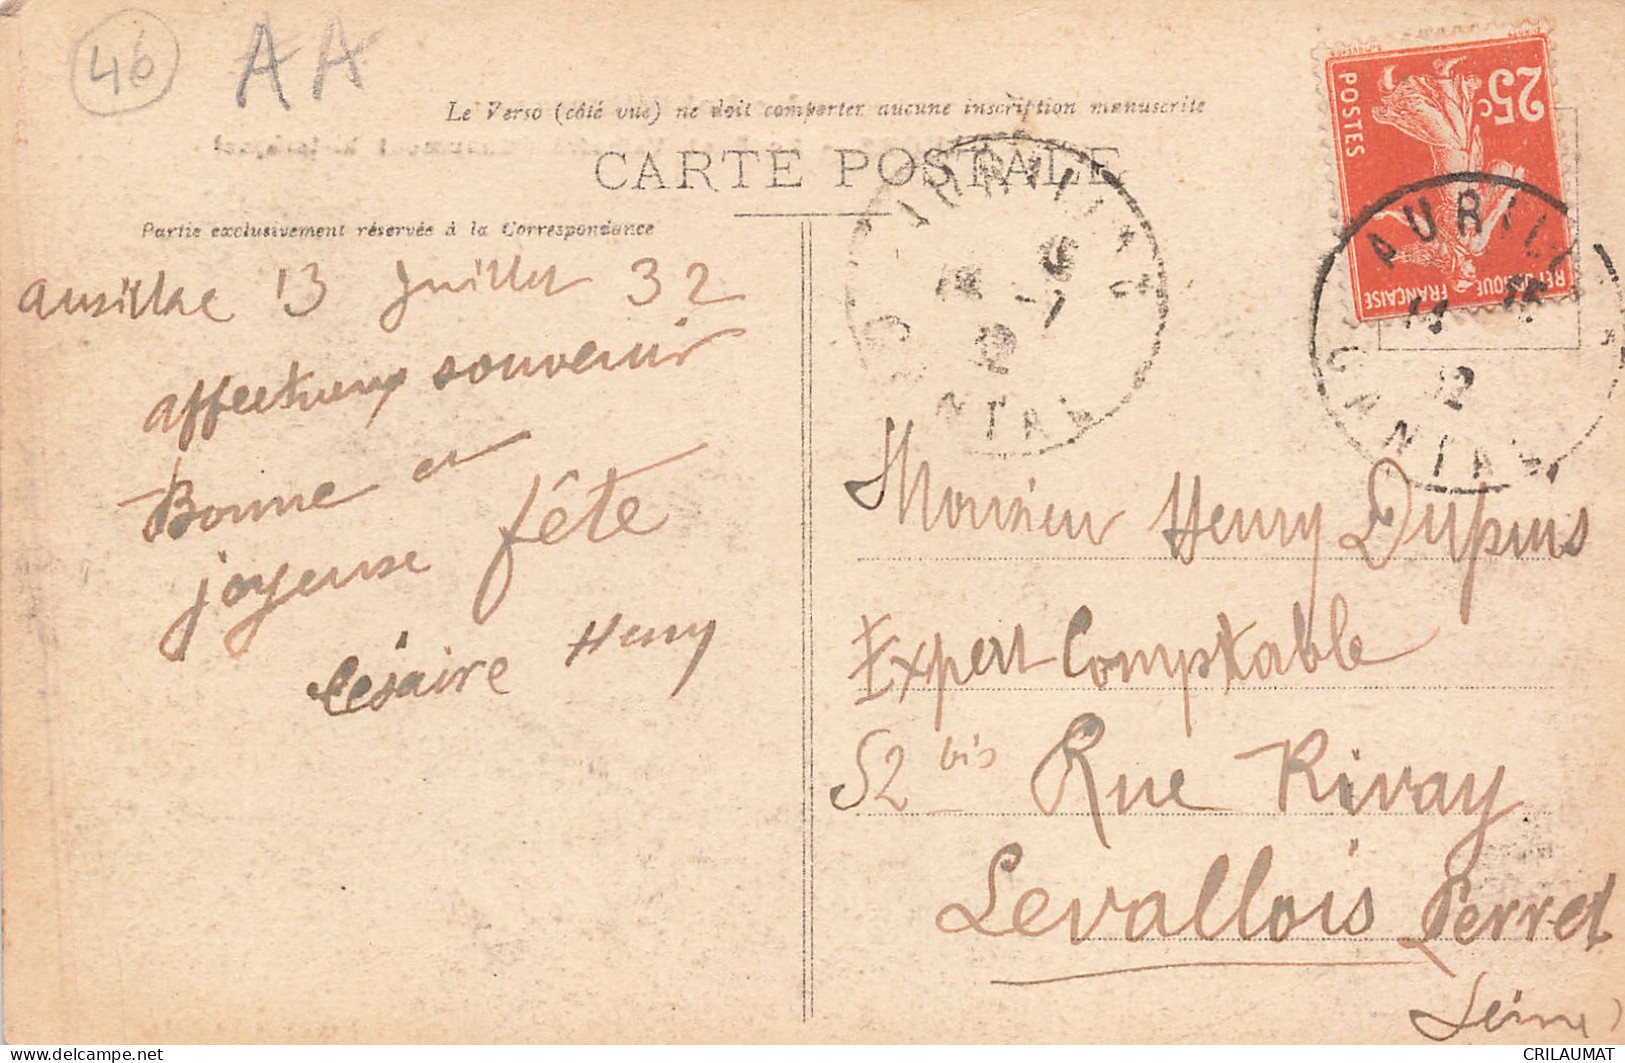 46
AA
Le Verso (côté vue) ne doit comporter aucune inscription manuscrite
CARTE POSTALE
Partie exclusivement réservée à la Correspondance
25c
POSTES
REPUBLIQUE FRANÇAISE
AURILLAC
CANTAL
AURILLAC
CANTAL
Aurillac 13 Juillet 32
affectueux souvenir
Bonne et
joyeuse fête
Césaire Henry
Monsieur Henry Dupuis
Expert Comptable
52 bis Rue Rivay
Levallois Perret
(Seine)
CRILAUMAT